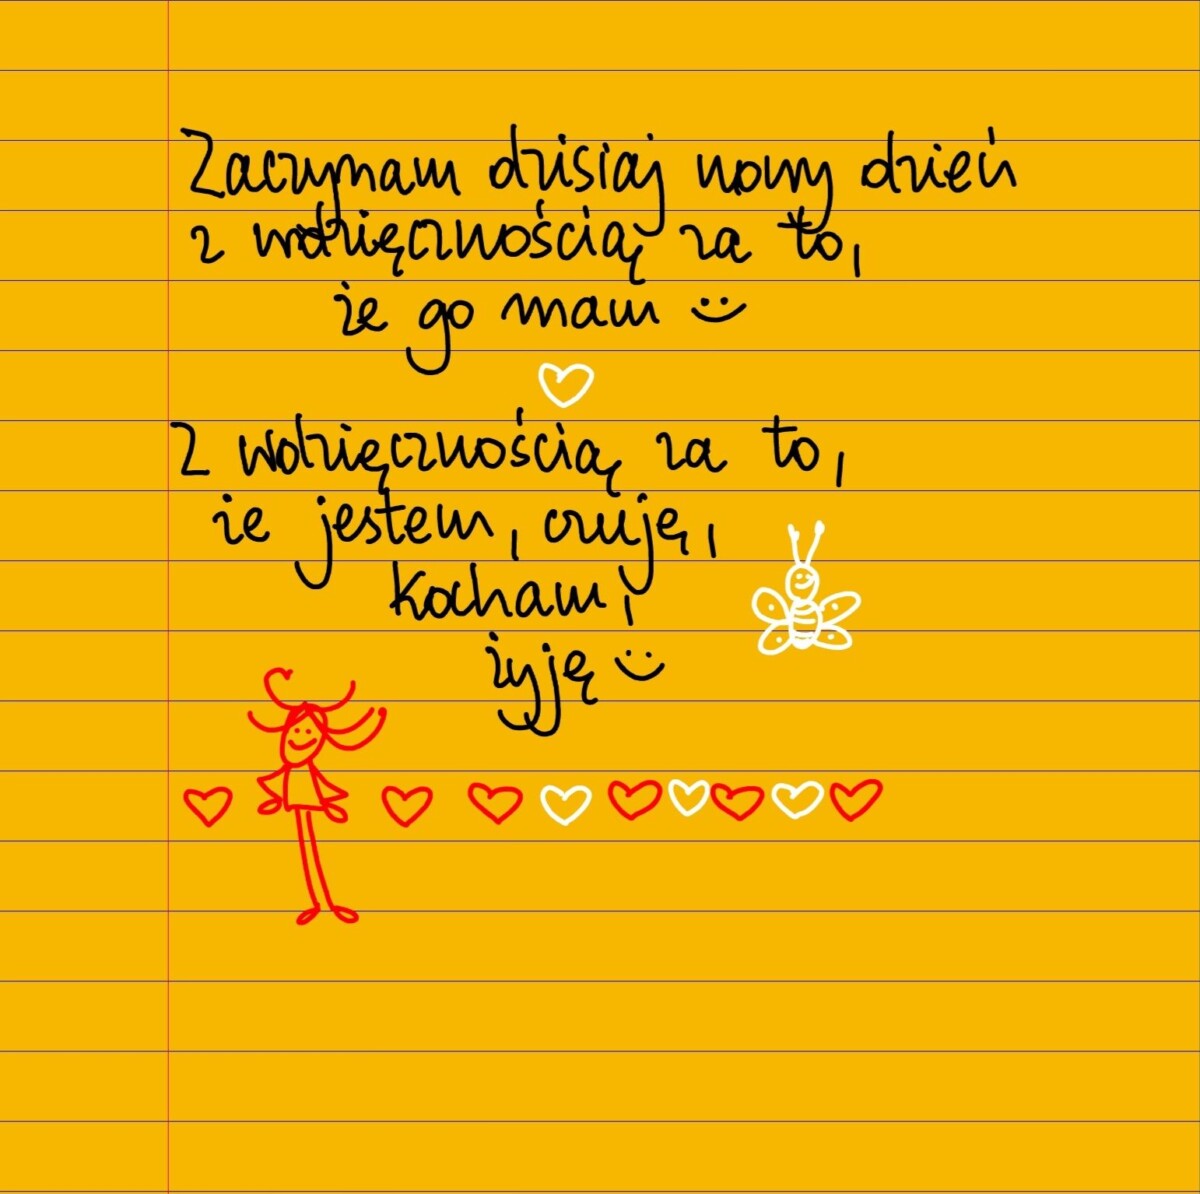 Zaczynam dzisiaj nowy dzień
z wdzięcznością za to,
że go mam :)
Z wdzięcznością za to,
że jestem, czuję,
kocham,
żyję :)